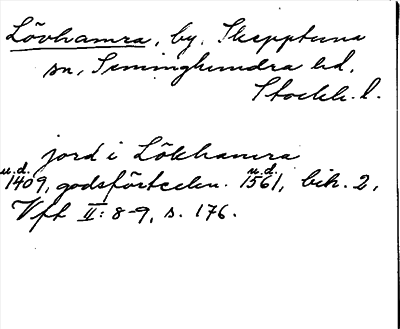 Lövhamra, by, Skepptuna
sn, Seminghundra hd,
Stockh. l.
jord i Lökhamra
u.d. 1409, godsförteckn. u.d. 1561, bih. 2,
Vft II: 8-9, s. 176.